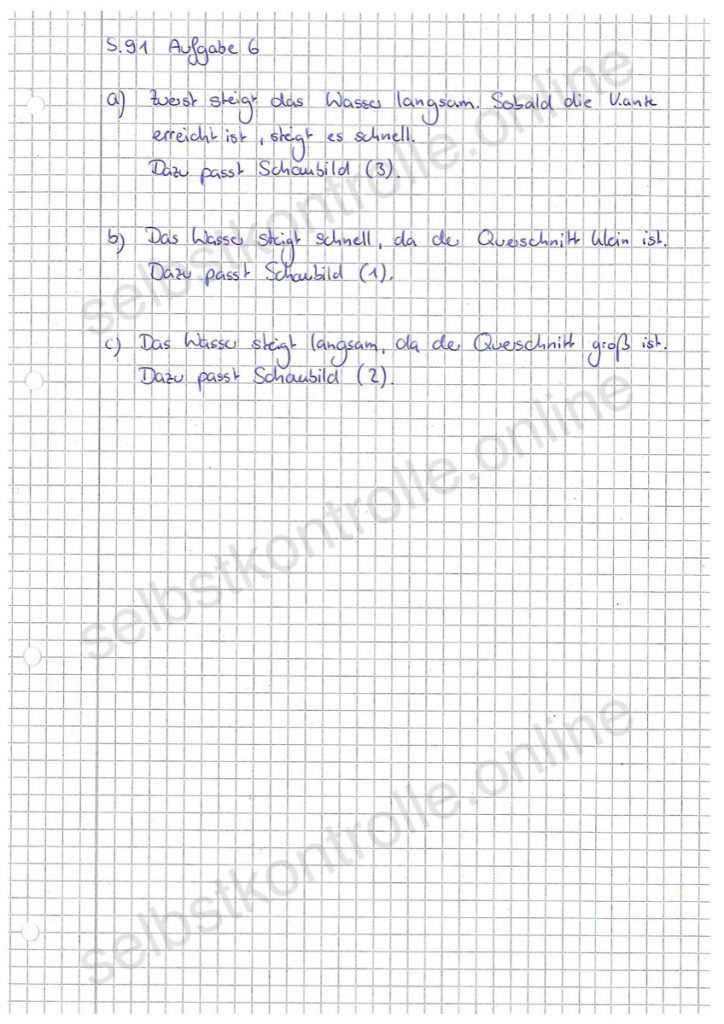 S.91 Aufgabe 6
a) Zuerst steigt das Wasser langsam. Sobald die V.ank
erreicht ist, steigt es schnell.
Dazu passt Schaubild (3).
b) Das Wasser steigt schnell, da der Querschnitt klein ist.
Dazu passt Schaubild (1).
c) Das Wasser steigt langsam, da der Querschnitt groß ist.
Dazu passt Schaubild (2).
selbstkontrolle.online
selbstkontrolle.online
selbstkontrolle.online